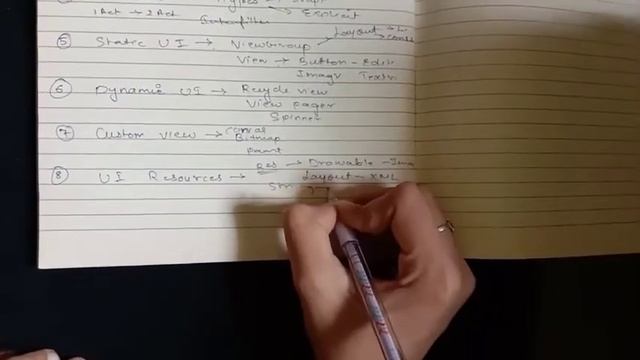 Explicit
1 Act → 2 Act
⑤ Static UI → Viewgroup Layout
View → Button - Edit
Imagv Textv
⑥ Dynamic UI → Recycle view
View pager
Spinner
⑦ Custom view → Canvas
Bitmap
paint
⑧ UI Resources → Res → Drawable - Ima
Layout - XML